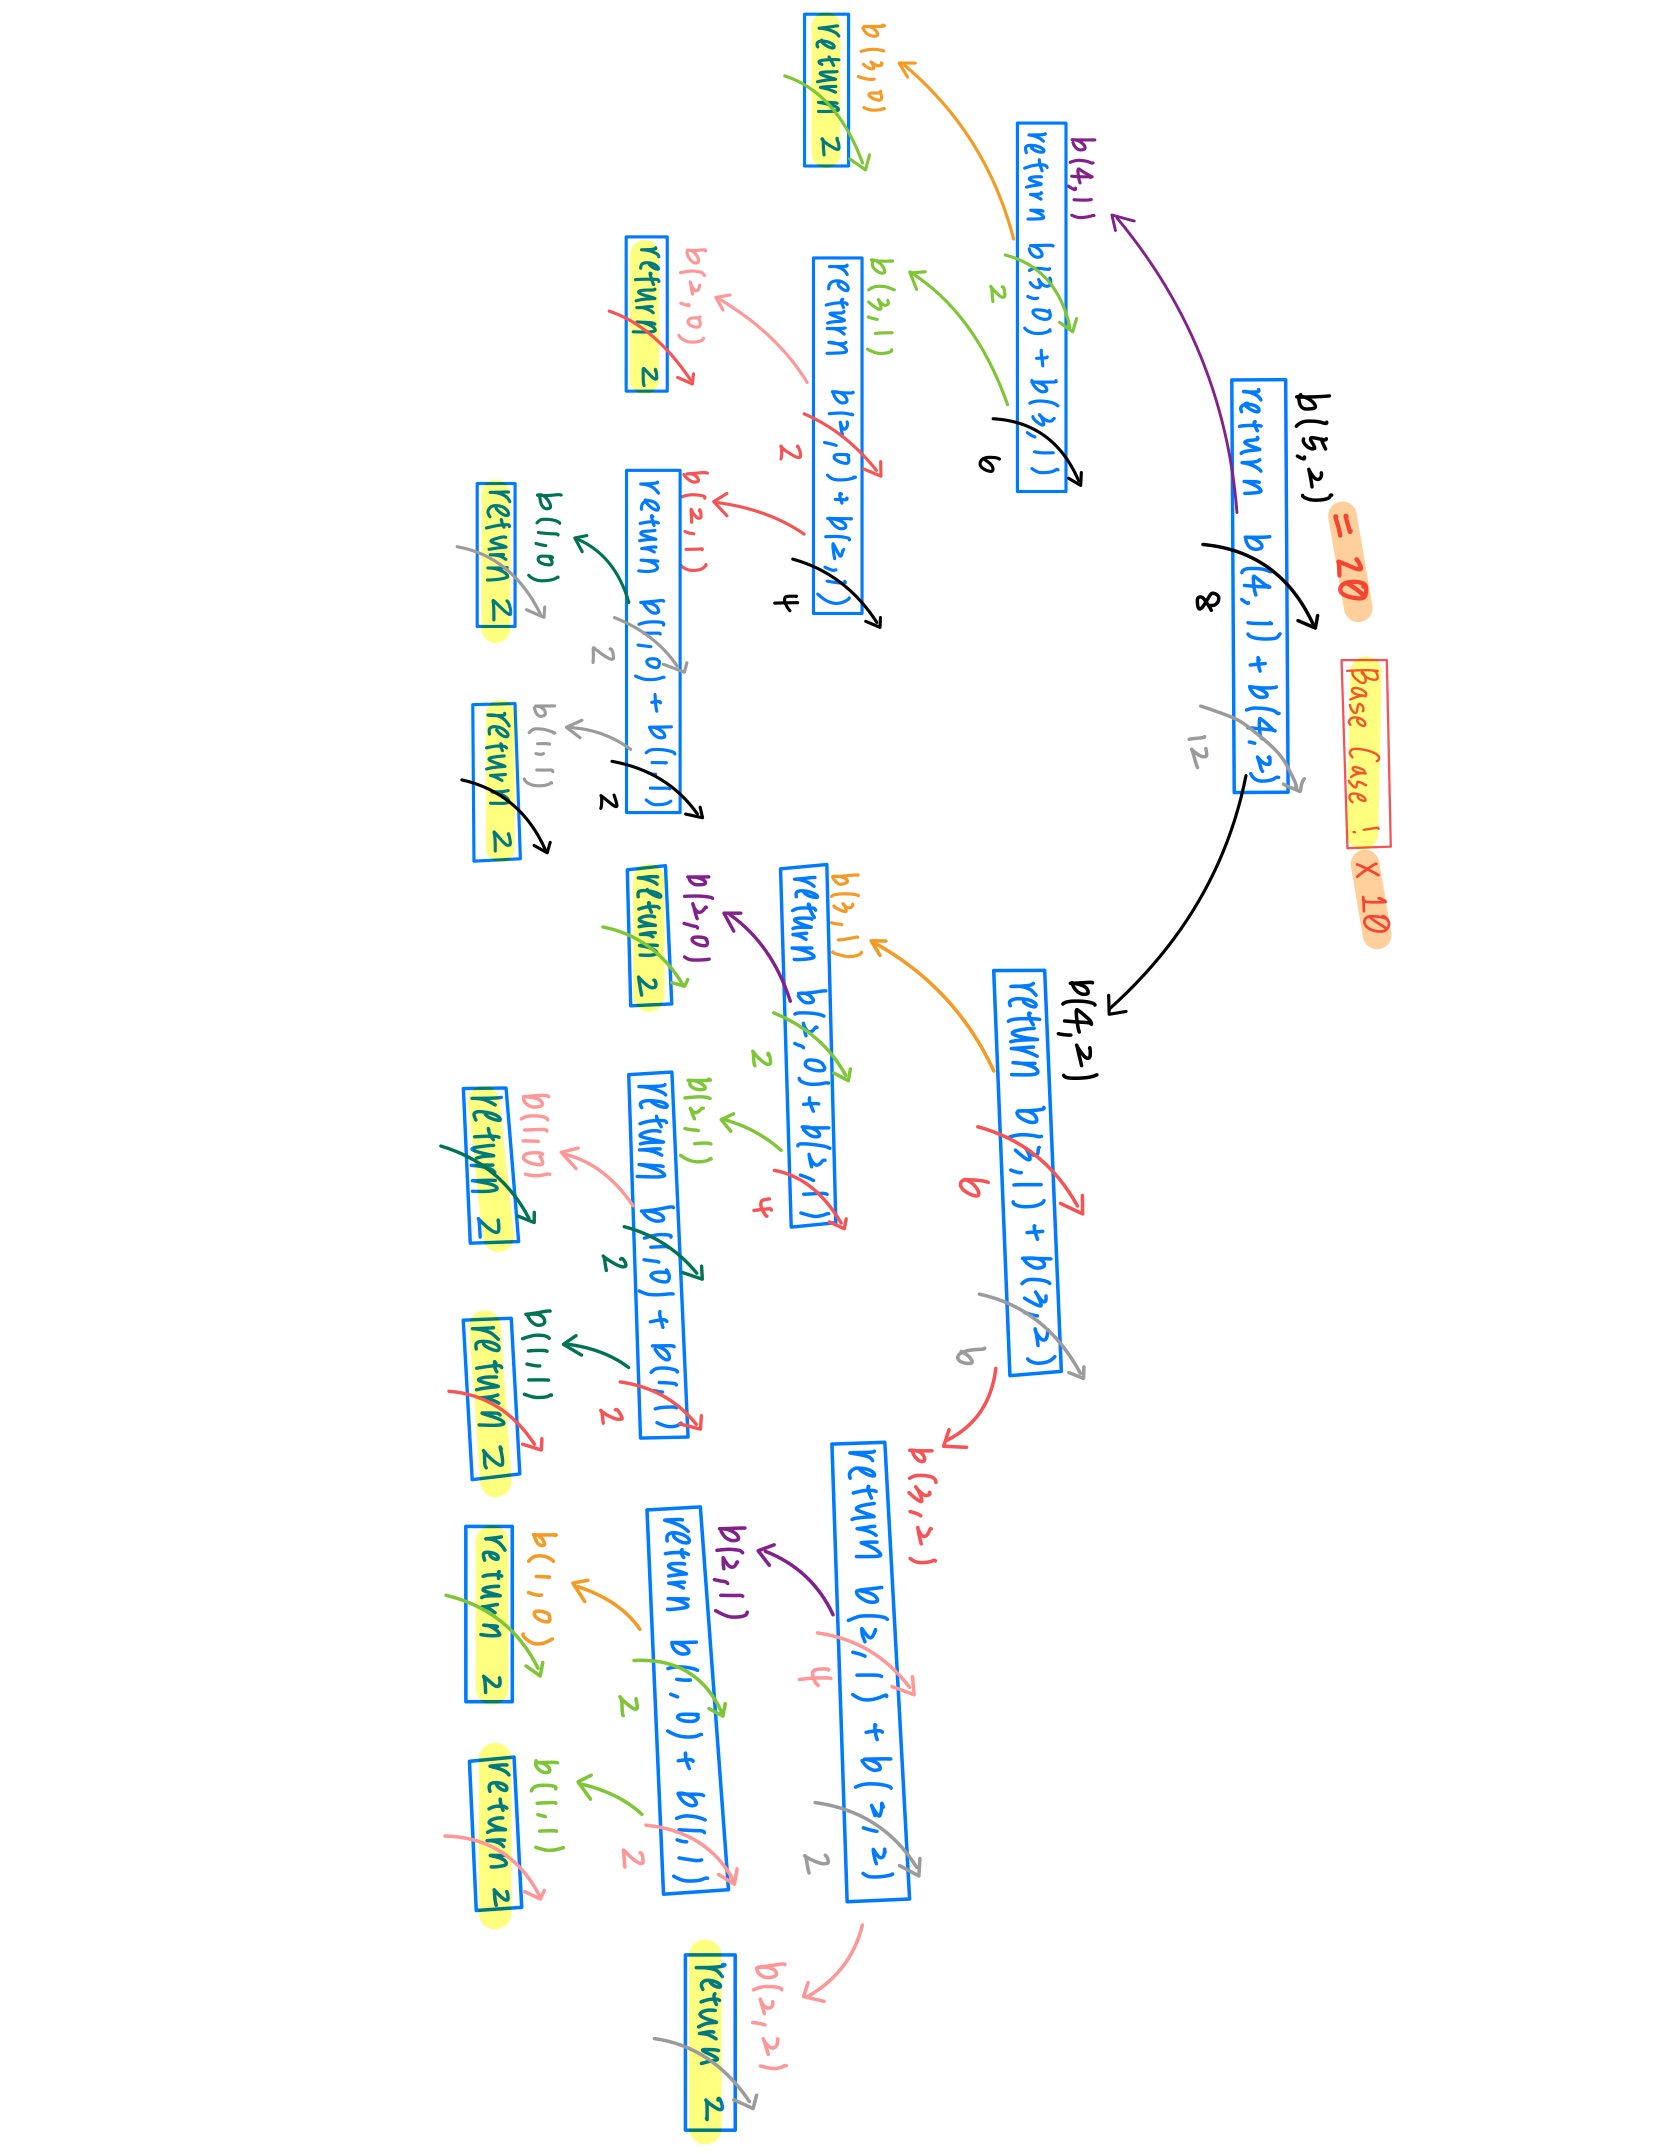 = 20
Base Case ! x 10
b(5,2)
return b(4,1) + b(4,2)
8
12
b(4,1)
return b(3,0) + b(3,1)
2
6
b(4,2)
return b(3,1) + b(3,2)
6
6
b(3,2)
return b(2,1) + b(2,2)
4
2
b(3,0)
return 2
b(3,1)
return b(2,0) + b(2,1)
2
4
b(3,1)
return b(2,0) + b(2,1)
2
4
b(2,2)
return 2
b(2,0)
return 2
b(2,1)
return b(1,0) + b(1,1)
2
2
b(2,0)
return 2
b(2,1)
return b(1,0) + b(1,1)
2
2
b(2,1)
return b(1,0) + b(1,1)
2
2
b(1,0)
return 2
b(1,1)
return 2
b(1,0)
return 2
b(1,1)
return 2
b(1,0)
return 2
b(1,1)
return 2